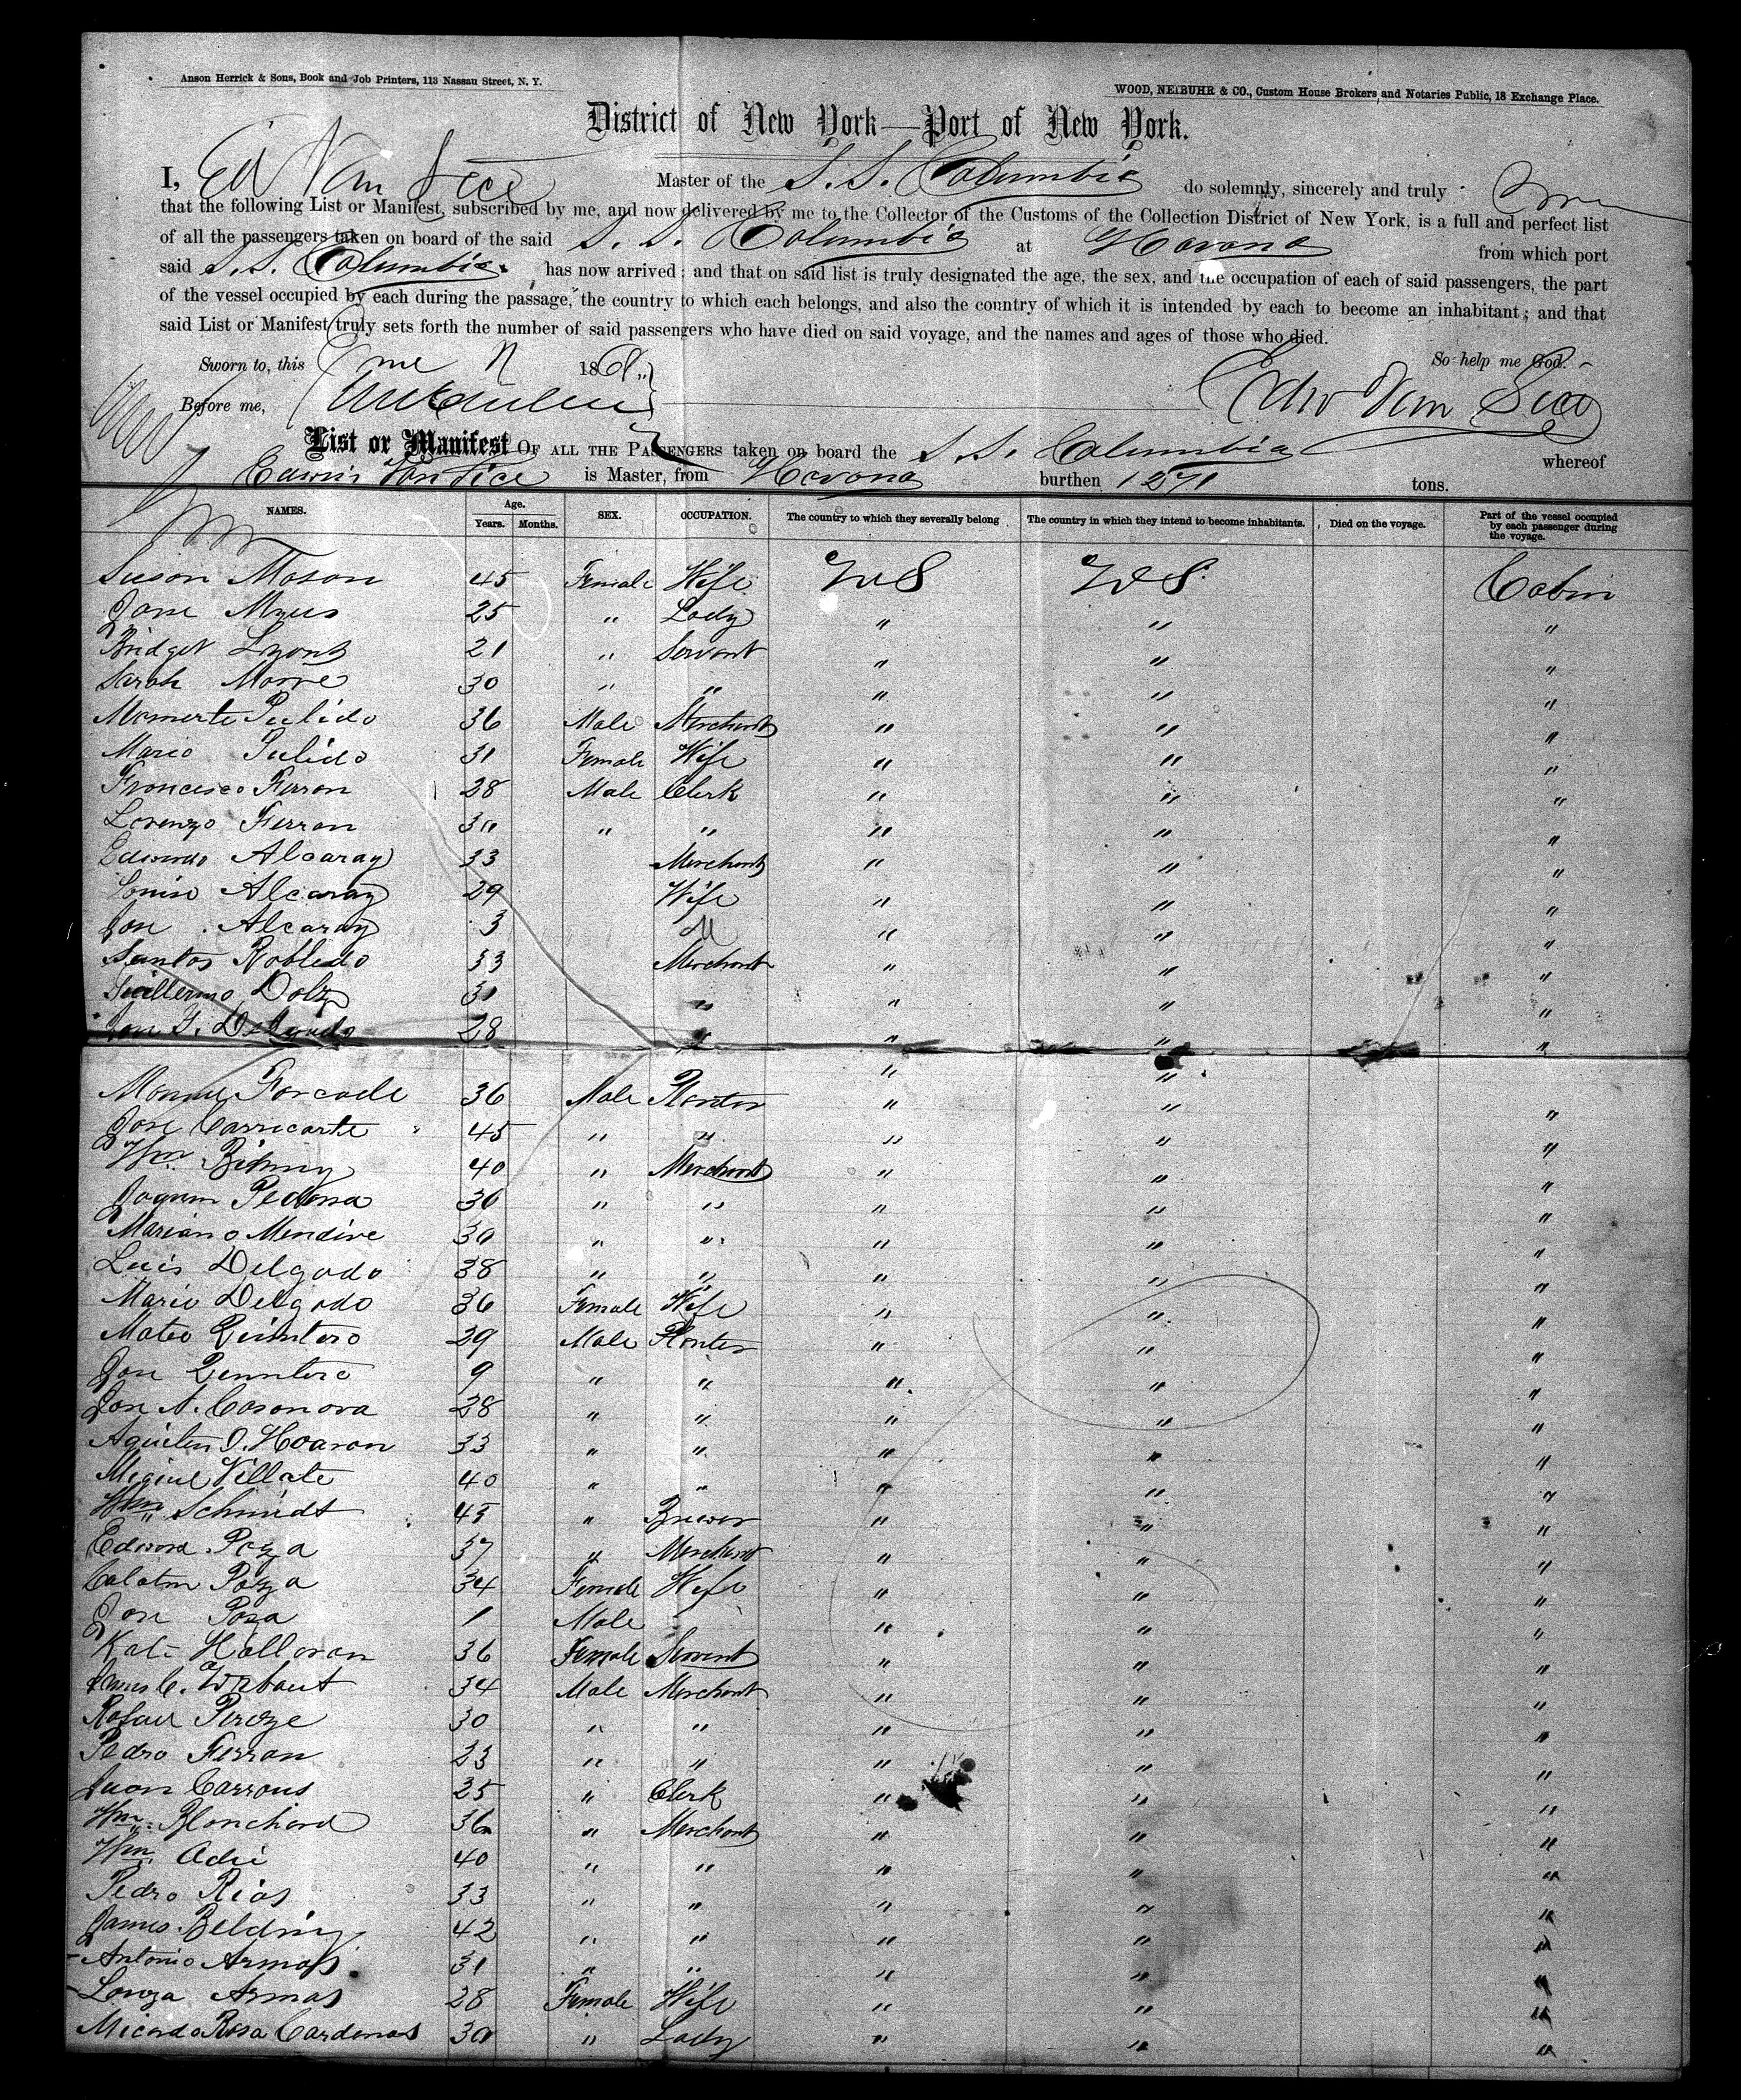 Anson Herrick & Sons, Book and Job Printers, 113 Nassau Street, N. Y.
WOOD, NEIBUHR & CO., Custom House Brokers and Notaries Public, 18 Exchange Place.
District of New York—Port of New York.
I, Ed Van Sice Master of the S. S. Columbia do solemnly, sincerely and truly
that the following List or Manifest, subscribed by me, and now delivered by me to the Collector of the Customs of the Collection District of New York, is a full and perfect list
of all the passengers taken on board of the said S. S. Columbia at Havana from which port
said S. S. Columbia has now arrived; and that on said list is truly designated the age, the sex, and the occupation of each of said passengers, the part
of the vessel occupied by each during the passage, the country to which each belongs, and also the country of which it is intended by each to become an inhabitant; and that
said List or Manifest truly sets forth the number of said passengers who have died on said voyage, and the names and ages of those who died.
Sworn to, this June 186 So help me God.
Before me, Edw Van Sice
List or Manifest OF ALL THE PASSENGERS taken on board the S. S. Columbia whereof
Edwin Van Sice is Master, from Havana burthen 1271 tons.
NAMES. Age. Years. Months. SEX. OCCUPATION. The country to which they severally belong The country in which they intend to become inhabitants. Died on the voyage. Part of the vessel occupied by each passenger during the voyage.
Susan Mason 45 Female Wife U S U S Cabin
Jane Myers 25 " Lady " " "
Bridget Lyons 21 " Servant " " "
Sarah Moore 30 " " " " "
Mamerte Pulido 36 Male Merchant " " "
Maria Pulido 31 Female Wife " " "
Francisco Ferran 28 Male Clerk " " "
Lorenzo Ferran 30 " " " " "
Eduardo Alcaraz 33 Merchant " " "
Louisa Alcaraz 29 Wife " " "
Jose Alcaraz 3 M " " "
Santos Robledo 33 Merchant " " "
Guillermo Dolz 31 " " " "
Jose F. Delgado 28 " " " "
Forcade 36 Male Planter " " "
Jose Carricarte 45 " " " " "
Wm. 40 " Merchant " " "
Pedrosa 36 " " " " "
Mariano Mendive 30 " " " " "
Luis Delgado 38 " " " " "
Maria Delgado 36 Female Wife " " "
Mateo Quintero 39 Male Planter " " "
Jose Quintero 9 " " " " "
Jose A. Casanova 28 " " " " "
33 " " " " "
Miguel Villate 40 " " " " "
Wm Schmidt 45 " Brewer " " "
Edward Poza 37 " Merchant " " "
Poza 34 Female Wife " " "
Jose Poza 1 Male " " "
Kate Halloran 36 Female Servant " " "
James C. 34 Male Merchant " " "
Rafael 30 " " " " "
Pedro Ferran 23 " " " " "
Juan 25 " Clerk " " "
Wm. Blanchard 36 " Merchant " " "
Wm. Adie 40 " " " " "
Pedro Rias 33 " " " " "
James Belding 42 " " " " "
Antonio Armas 31 " " " " "
Armas 28 Female Wife " " "
Rosa Cardenas 30 " Lady " " "